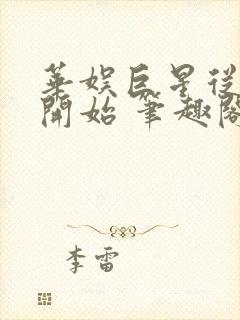 華娛巨星從
開始 筆趣閣
李雷